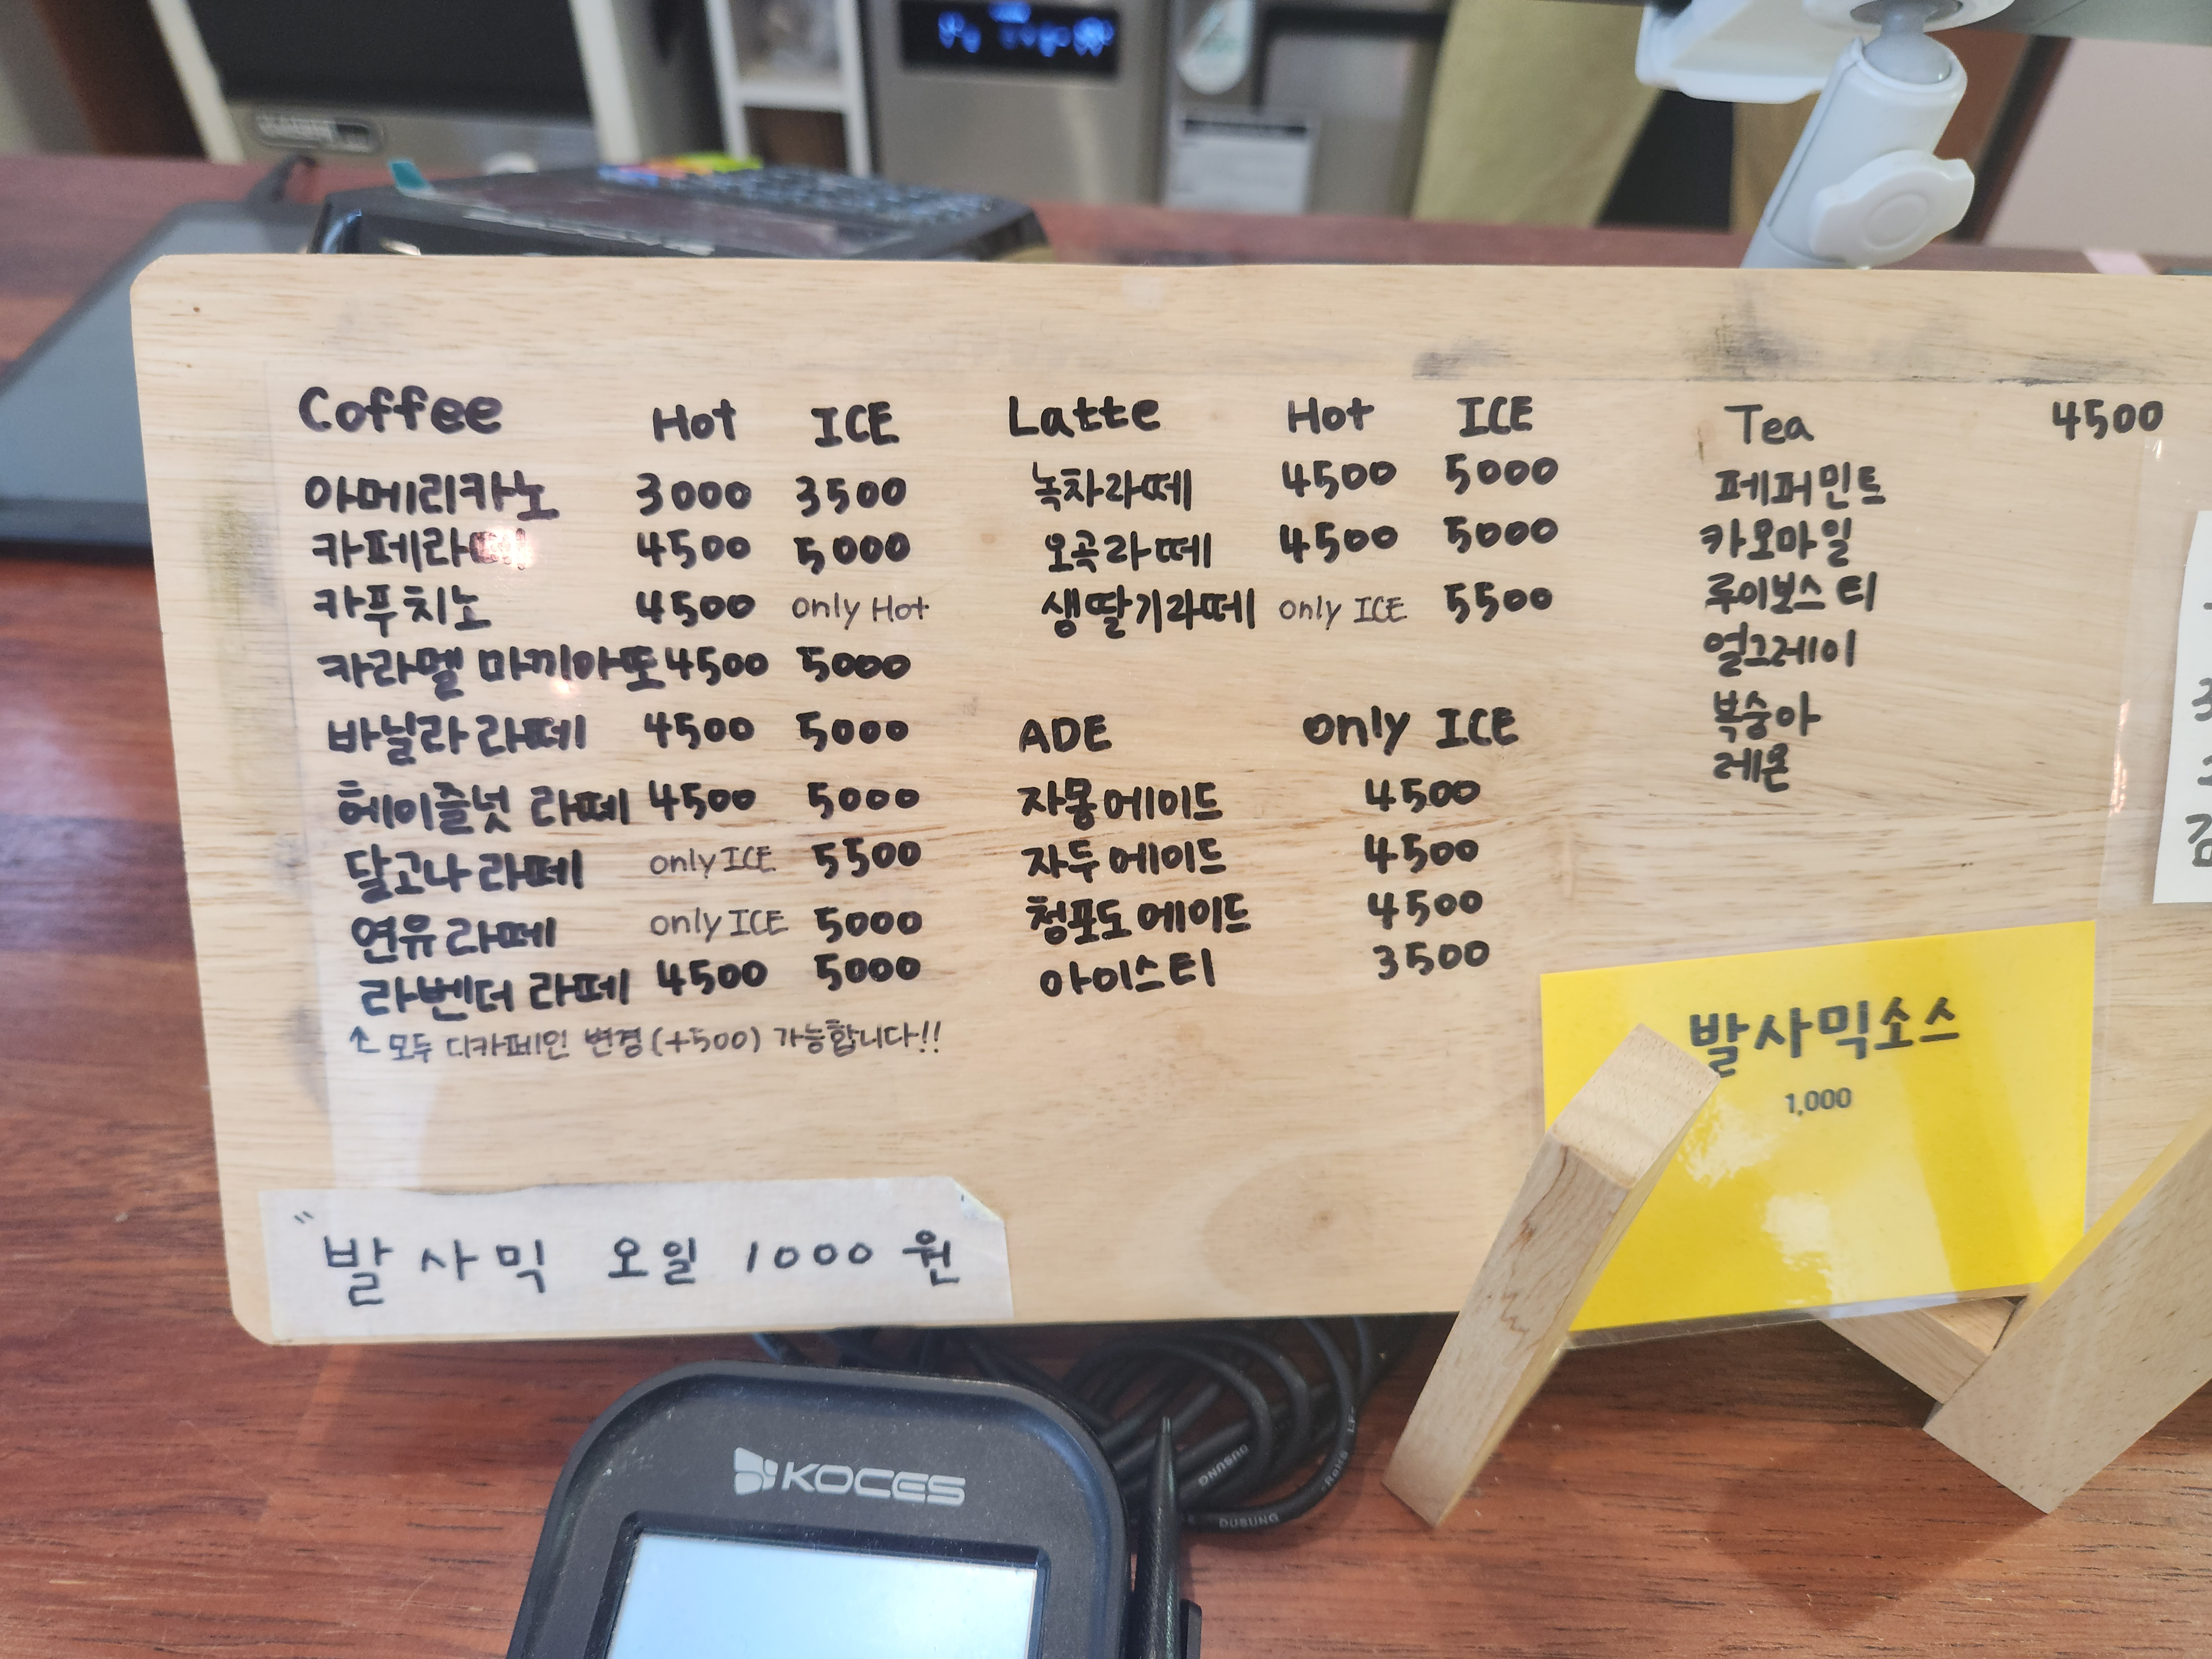 Coffee Hot ICE
아메리카노 3000 3500
카페라떼 4500 5000
카푸치노 4500 only Hot
카라멜 마끼아또 4500 5000
바닐라 라떼 4500 5000
헤이즐넛 라떼 4500 5000
달고나 라떼 only ICE 5500
연유 라떼 only ICE 5000
라벤더 라떼 4500 5000
↑ 모두 디카페인 변경 (+500) 가능합니다!!
Latte Hot ICE
녹차라떼 4500 5000
오곡라떼 4500 5000
생딸기라떼 only ICE 5500
ADE only ICE
자몽에이드 4500
자두에이드 4500
청포도에이드 4500
아이스티 3500
Tea 4500
페퍼민트
카모마일
루이보스티
얼그레이
복숭아
레몬
발사믹소스
1,000
" 발사믹 오일 1000 원
KOCES
DUSUNG
DUSUNG